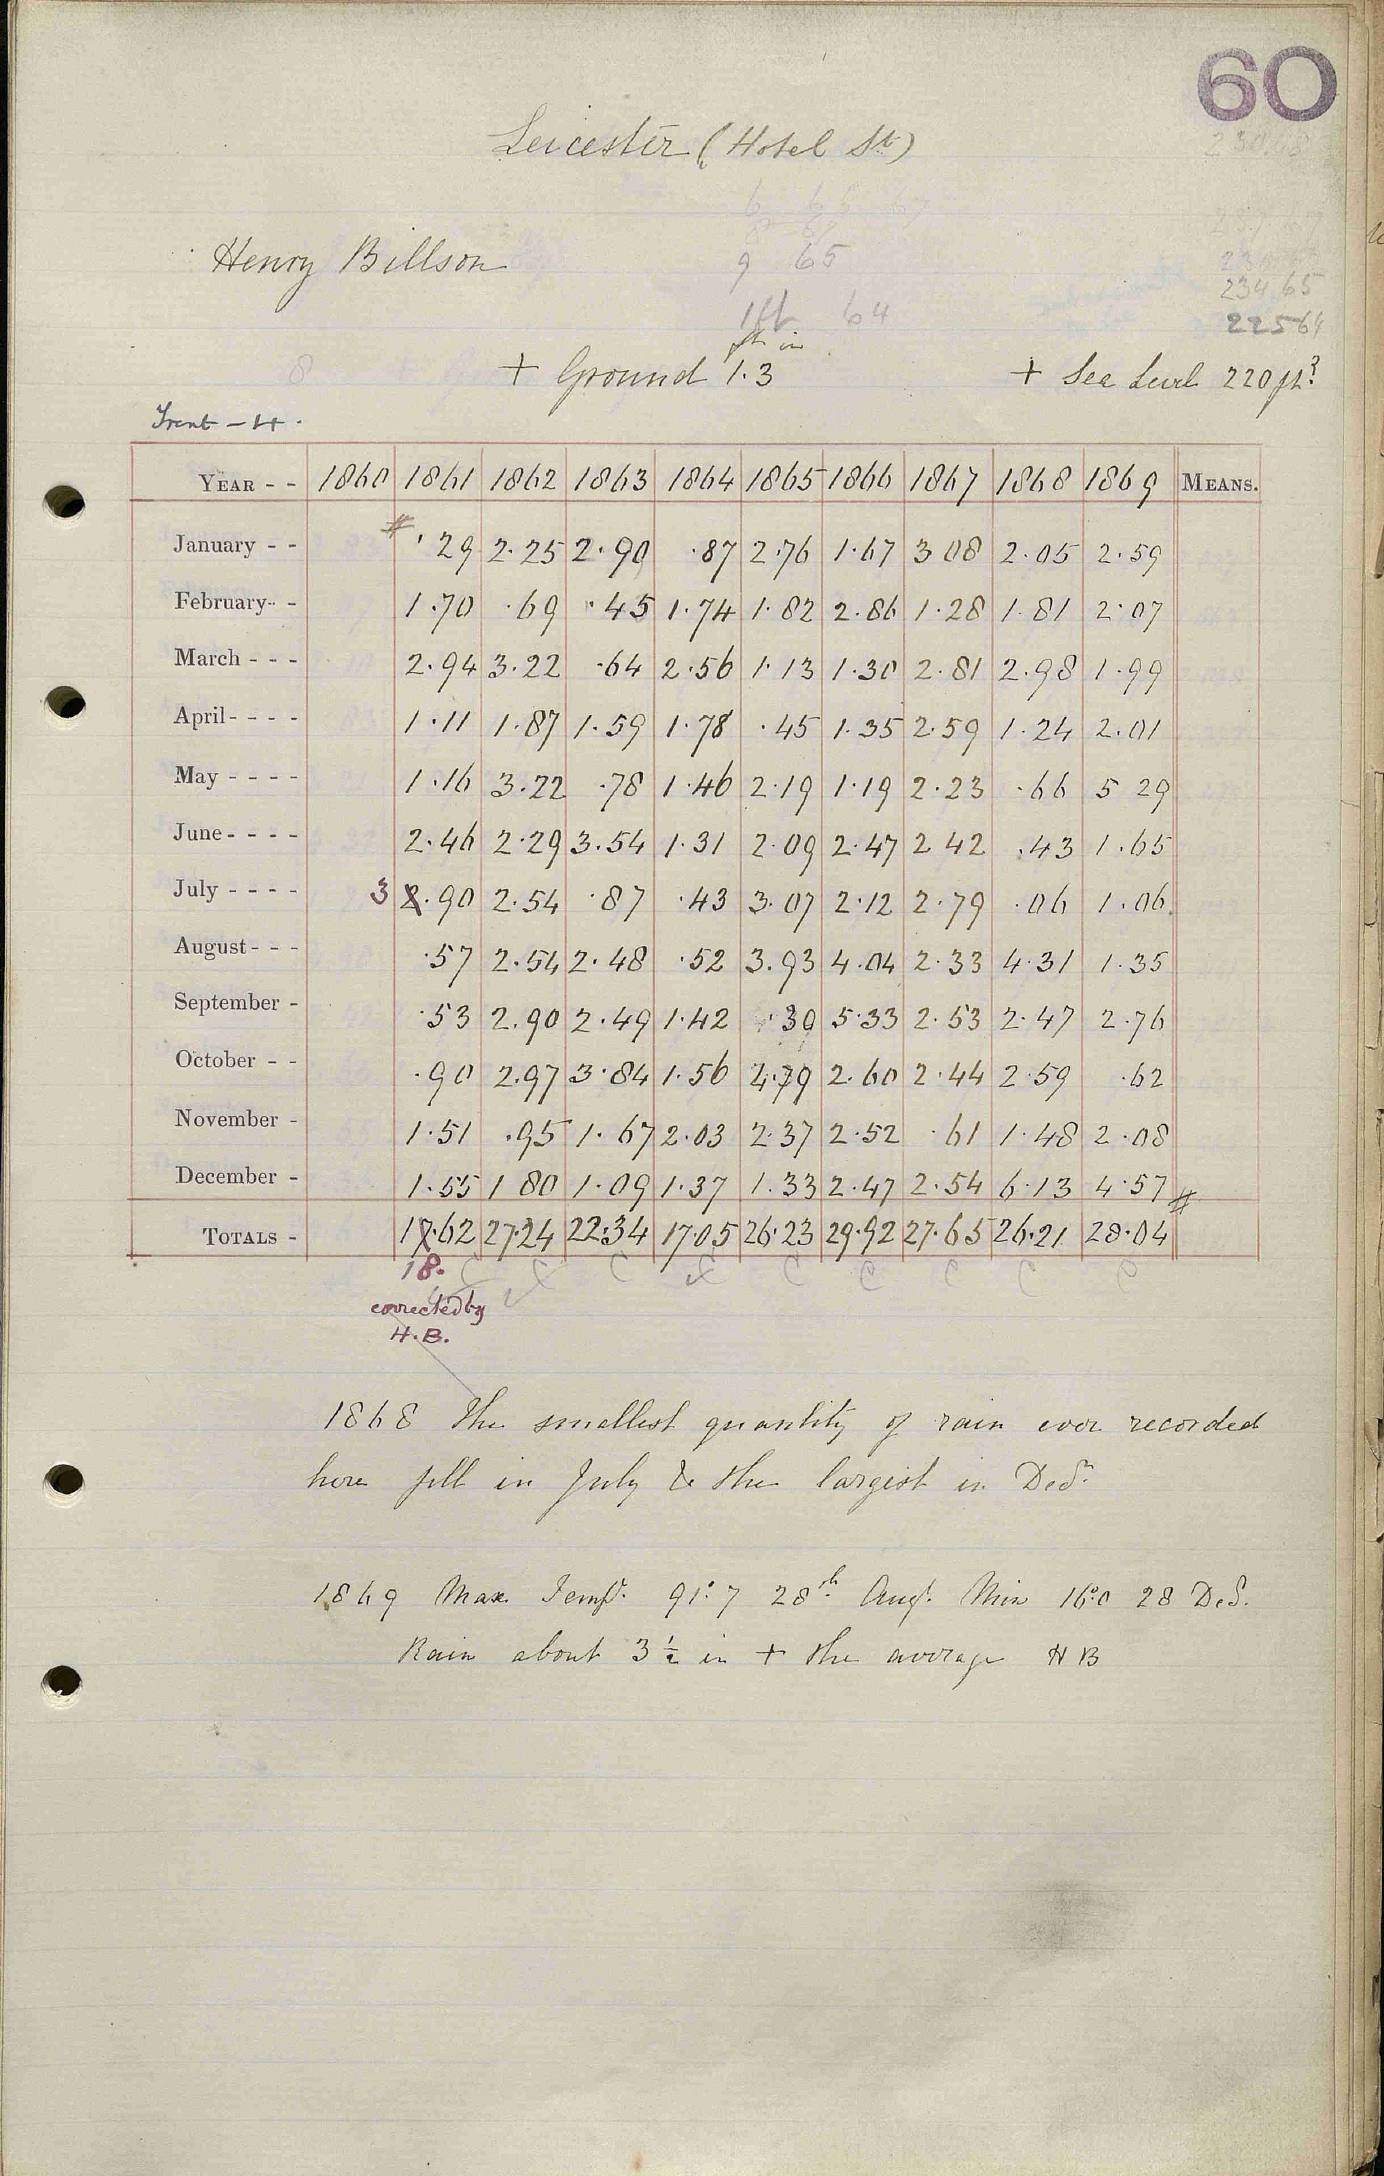 60
Leicester (Hotel St)
Henry Billson
9 65
1ft 64
234 65
225 64
ft in
+ Ground 1.3 + Sea Level 220 ft?
Trent - H.
YEAR - - 1860 1861 1862 1863 1864 1865 1866 1867 1868 1869 MEANS.
January - - # .29 2.25 2.90 .87 2.76 1.67 3 08 2.05 2.59
February- - 1.70 .69 .45 1.74 1.82 2.86 1.28 1.81 2.07
March - - - 2.94 3.22 .64 2.56 1.13 1.30 2.81 2.98 1.99
April- - - - 1.11 1.87 1.59 1.78 .45 1.35 2.59 1.24 2.01
May - - - - 1.16 3.22 .78 1.46 2.19 1.19 2.23 .66 5 29
June- - - - 2.46 2.29 3.54 1.31 2.09 2.47 2 42 .43 1.65
July - - - - 3 2.90 2.54 .87 .43 3.07 2.12 2.79 .06 1.06
August- - - .57 2.54 2.48 .52 3.93 4.04 2.33 4.31 1.35
September - .53 2.90 2.49 1.42 .30 5.33 2.53 2.47 2.76
October - - .90 2.97 3.84 1.56 4.79 2.60 2.44 2.59 .62
November - 1.51 .95 1.67 2.03 2.37 2.52 .61 1.48 2.08
December - 1.55 1 80 1.09 1.37 1.33 2.47 2.54 6.13 4.57 #
TOTALS - 17.62 27.24 22.34 17.05 26.23 29.92 27.65 26.21 28.04
18.
corrected by
H.B.
1868 The smallest quantity of rain ever recorded
here fell in July & the largest in Decr
1869 Max Tempr. 91°.7 28th Augt. Min 16°.0 28 Dec.
Rain about 3 ½ in + the average H B